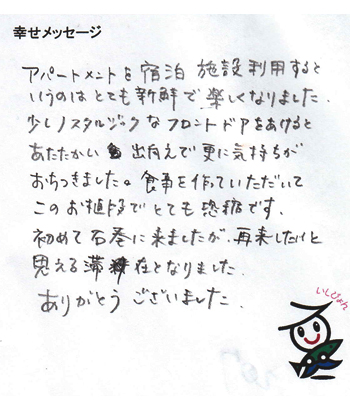 幸せメッセージ
アパートメントを宿泊施設利用すると
いうのはとても新鮮で楽しくなりました.
少しノスタルジックなフロントドアをあけると
あたたかい出向えで更に気持ちが
おちつきました。食事を作っていただいて
このお値段でとても恐縮です.
初めて石巻に来ましたが、再来したいと
思える滞在となりました.
ありがとうございました.
いしぴょん